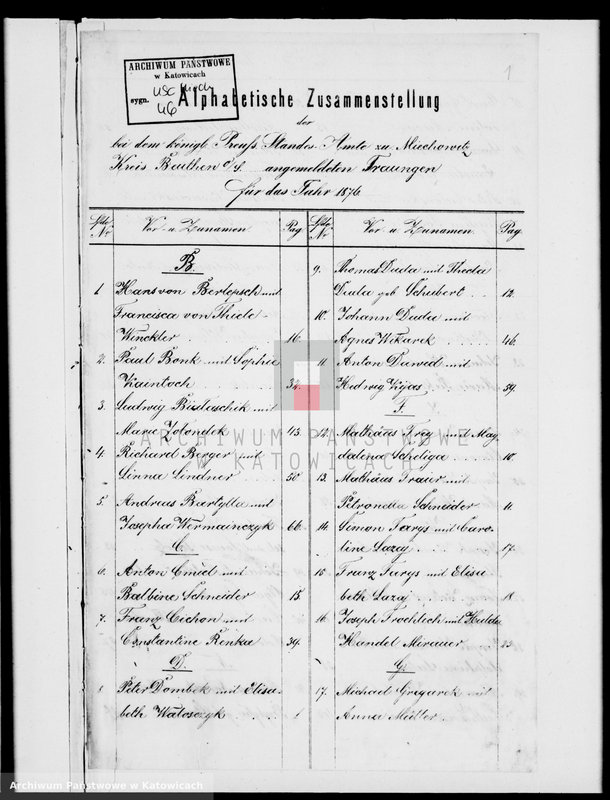 ARCHIWUM PAŃSTWOWE
w Katowicach
sygn. USC Miech
46
1
Alphabetische Zusammenstellung
der
bei dem königl. Preuß. Standes-Amte zu Miechowitz
Kreis Beuthen O/S. angemeldeten Trauungen
für das Jahr 1876.
Lfde. Nr. Vor- u. Zunamen Pag.
B.
1. Hans von Berlepsch mit
Francisca von Thiele-
Winckler 16.
2. Paul Bonk mit Sophie
Kaintoch 32.
3. Ludwig mit
Marie Zolondek 43.
4. Richard Berger mit
Linna Lindner 50
5. Andreas Bartylla mit
Josepha 66.
C.
6. Anton Cmiel mit
Balbine Schneider 15.
7. Franz Cichon mit
Constantine Renka 39.
D.
Peter Dombek mit Elisa-
beth Watosczyk
Lfde. Nr. Vor- u. Zunamen. Pag.
9. Thomas Duda mit Thecla
Duda geb. Schubert 12.
10. Johann Duda mit
Agnes Wikarek 46.
11. Anton Dawid mit
Hedwig 54.
F.
12. Mathäus Frey mit Mag-
dalena Scheliga 10.
13. Mathäus mit
Petronella Schneider 11.
14. Simon Farys mit Caro-
line Lazay 17.
15 Franz Farys mit Elisa-
beth Lazay 18
16 Joseph Froehlich mit Hulda
Handel 23.
G.
17. Michael Gregarek mit
Anna Müller
ARCHIWUM PAŃSTWOWE
W KATOWICACH
Archiwum Państwowe w Katowicach